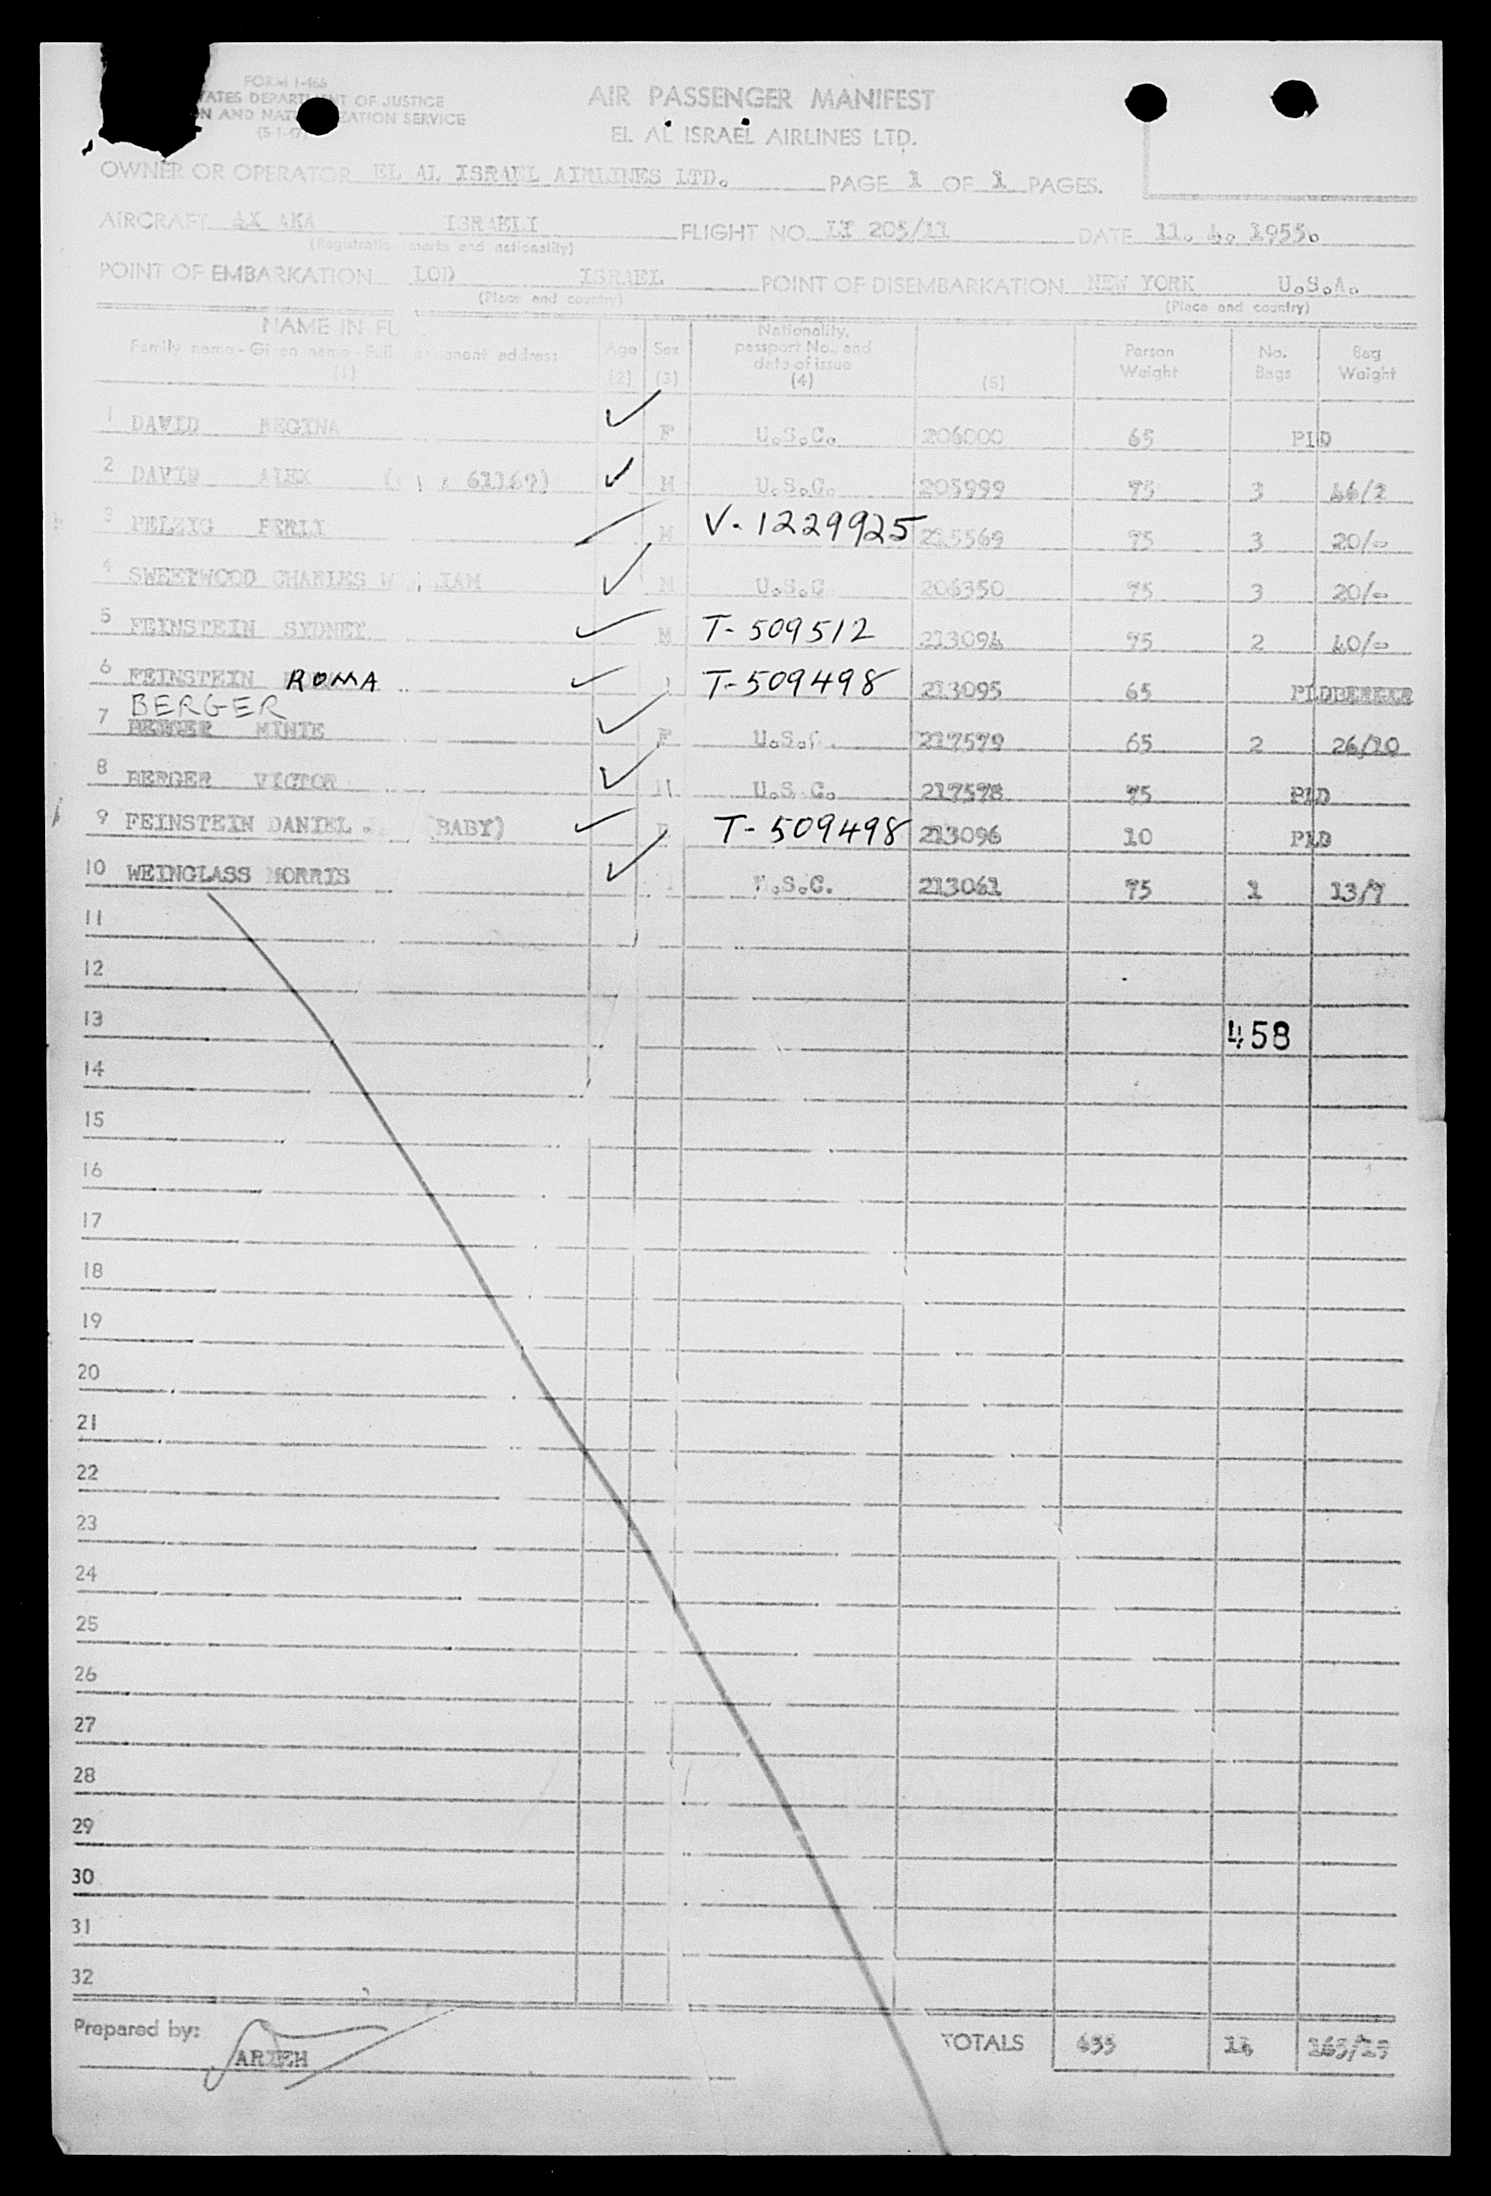 FORM I-466
TATES DEPARTMENT OF JUSTICE
N AND NAT ZATION SERVICE
AIR PASSENGER MANIFEST
EL AL ISRAEL AIRLINES LTD.
OWNER OR OPERATOR EL AL ISRAEL AIRLINES LTD. PAGE 1 OF 1 PAGES.
AIRCRAFT 4X AKA ISRAELI FLIGHT NO. LY 205/11 DATE 11. 4. 1955.
(Registration marks and nationality)
POINT OF EMBARKATION LOD ISRAEL POINT OF DISEMBARKATION NEW YORK U.S.A.
(Place and country) (Place and country)
NAME IN FU
Family name - Given name - Full permanent address
(1)
Age (2)
Sex (3)
Nationality, passport No., and date of issue (4)
(5)
Person Weight
No. Bags
Bag Weight
1 DAVID REGINA F U.S.C. 206000 65 PLD
2 DAVID ALEX 61167) M U.S.C. 205999 75 3 46/2
3 PELZIG PERLY M V-1229925 215569 75 3 20/-
4 SWEETWOOD CHARLES W IAM M U.S.C 206350 75 3 20/-
5 FEINSTEIN SYDNEY M T-509512 213094 75 2 40/-
6 FEINSTEIN ROMA T-509498 213095 65 PLD
BERGER
7 BERGER MINIE F U.S.C. 217579 65 2 26/10
8 BERGER VICTOR M U.S.C. 217578 75 PLD
9 FEINSTEIN DANIEL (BABY) T-509498 213096 10 PLD
10 WEINGLASS MORRIS U.S.C. 213061 75 1 13/7
11
12
13 458
14
15
16
17
18
19
20
21
22
23
24
25
26
27
28
29
30
31
32
Prepared by: ARIEH TOTALS 655 14 165/19